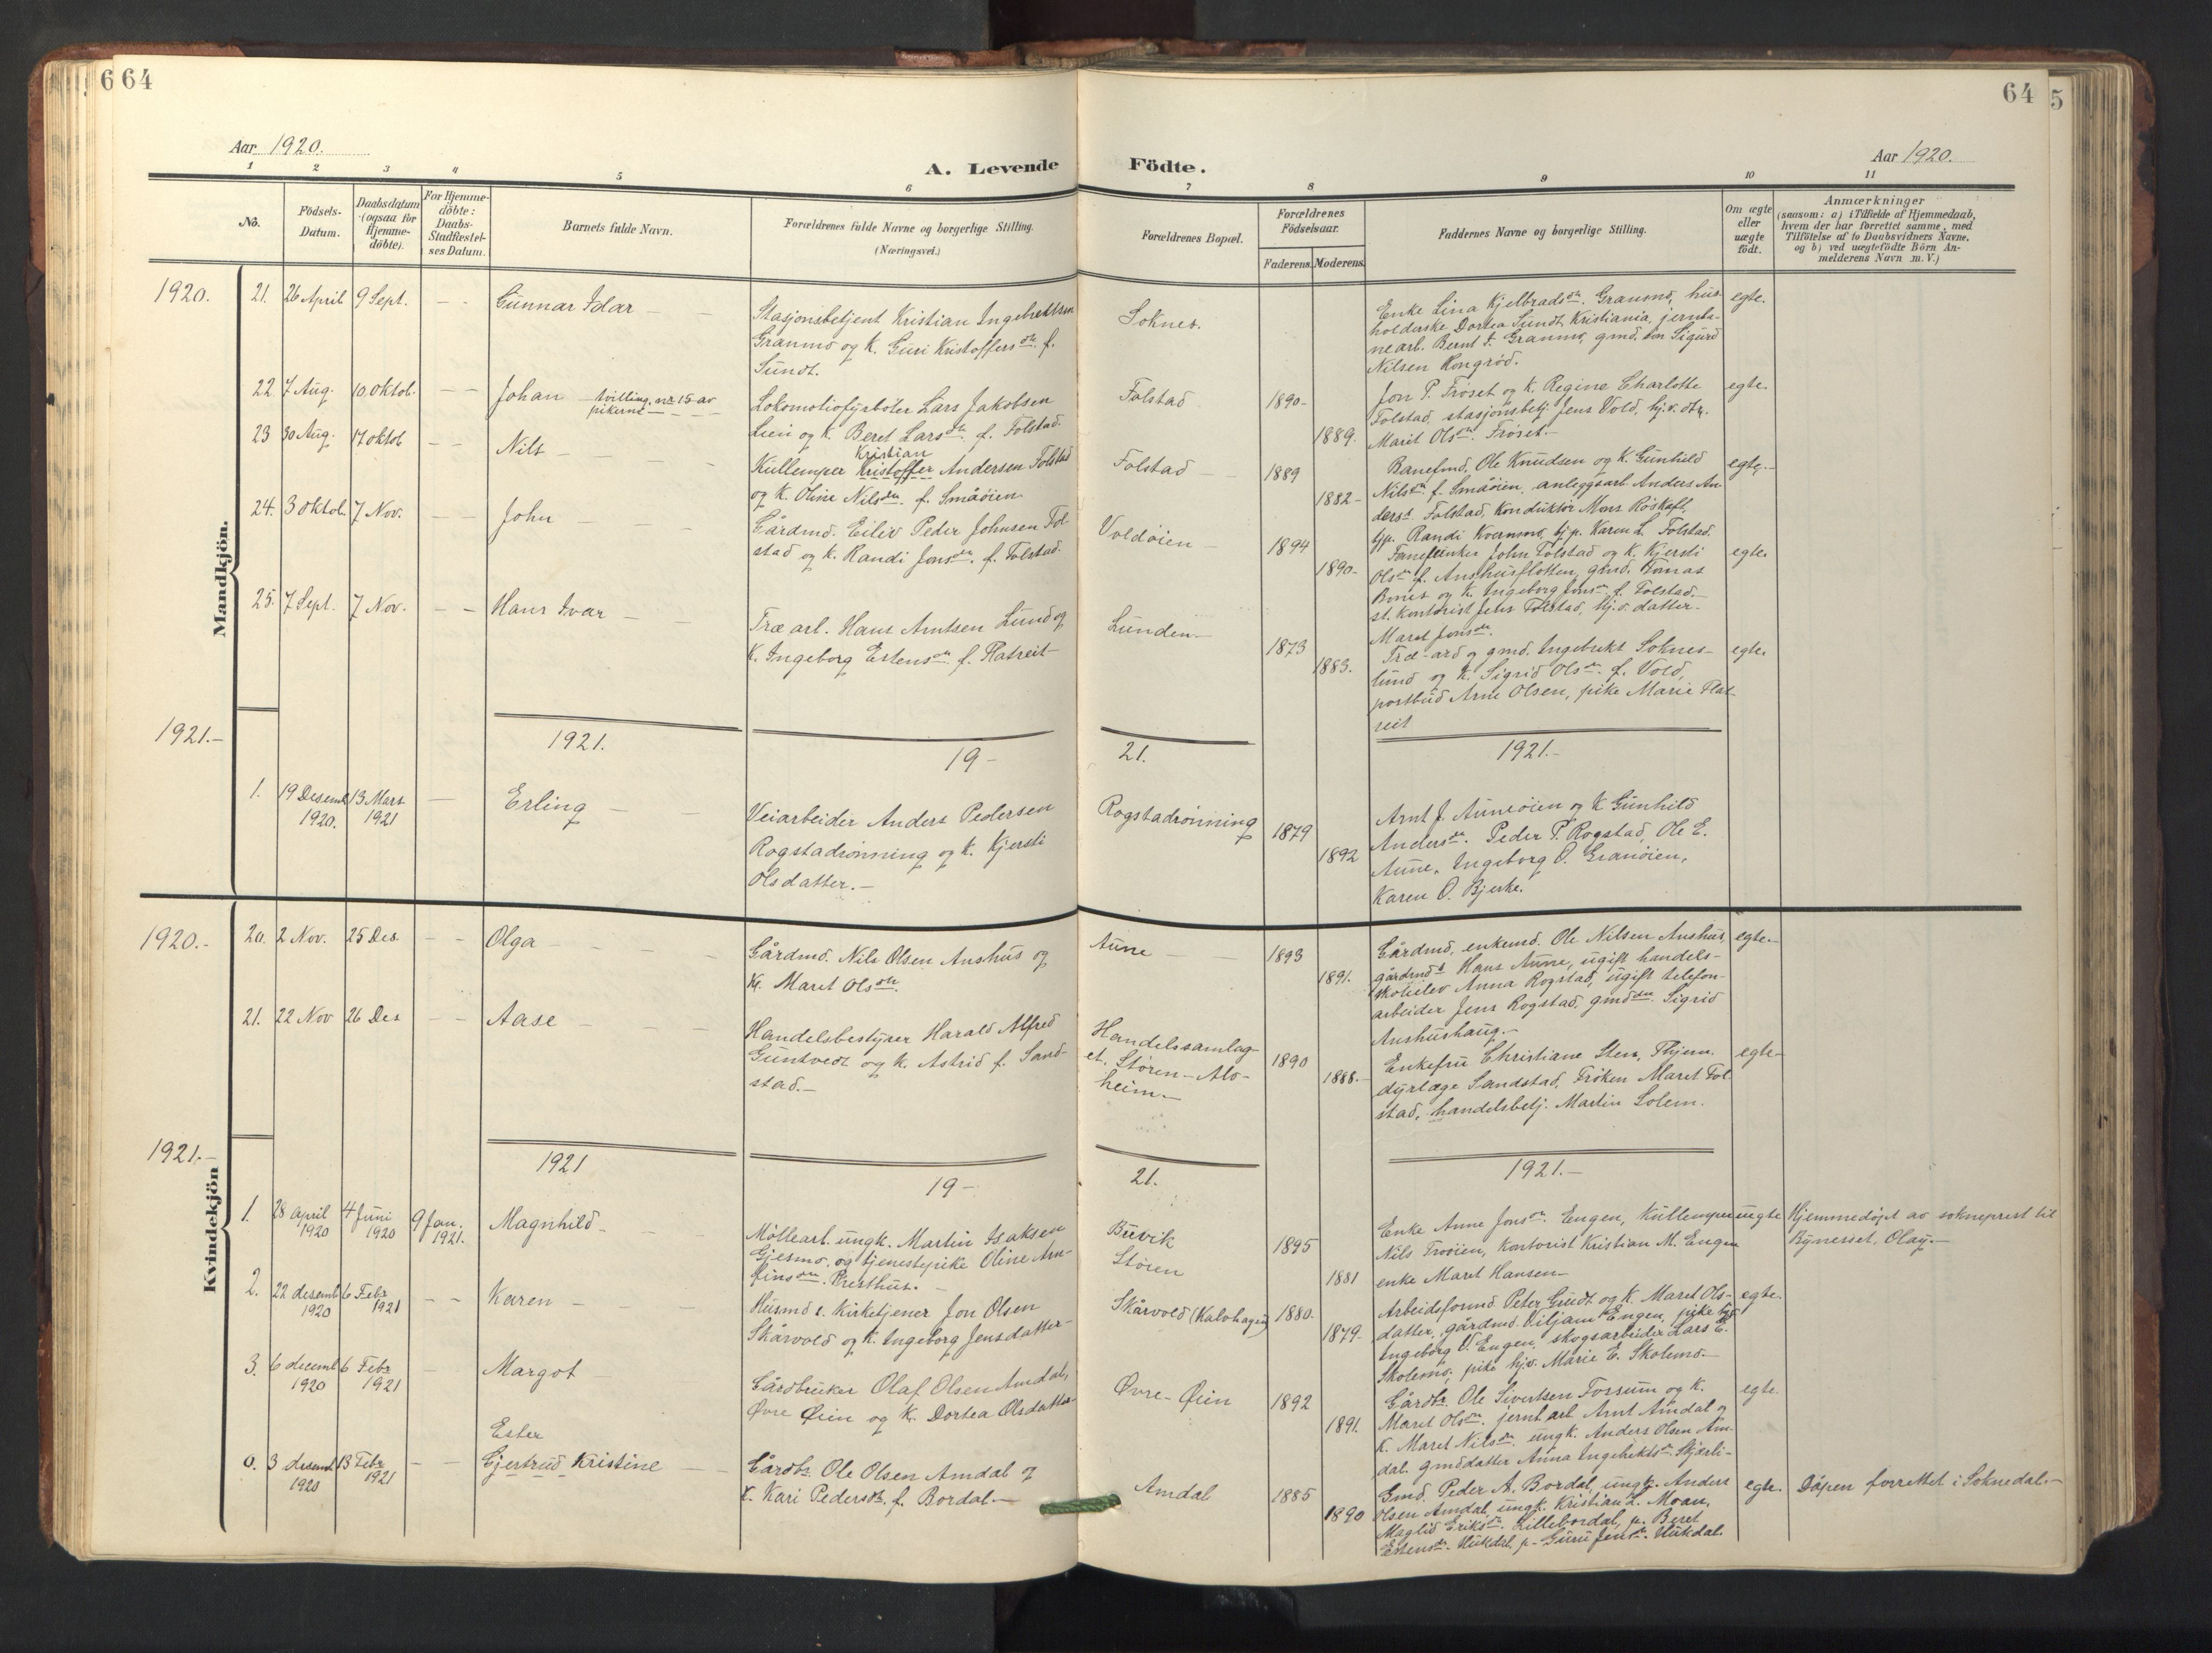 6 64
64 5
Aar 1920.
Aar 1920.
A. Levende Födte.
1 2 3 4 5 6 7 8 9 10 11
No.
Födsels-
Datum.
Daabsdatum
(ogsaa for
Hjemme-
döbte).
For Hjemme-
döbte:
Daabs-
Stadfæstel-
ses Datum.
Barnets fulde Navn.
Forældrenes fulde Navne og borgerlige Stilling.
(Næringsvei.)
Forældrenes Bopæl.
Forældrenes
Födselsaar.
Faderens. Moderens.
Faddernes Navne og borgerlige Stilling.
Om ægte
eller
uægte
födt.
Anmærkninger
(saasom: a) i Tilfælde af Hjemmedaab,
hvem der har forrettet samme, med
Tilföielse af to Daabsvidners Navne,
og b) ved uægtefödte Börn An-
melderens Navn m. V.)
Mandkjön.
1920.
21. 26 April 9 Sept. - - Gunnar Idar - -
Stasjonsbetjent Kristian Ingebrektsen
Granmo og K. Guri Kristoffersdtr. f.
Sundt.
Soknes.
Enke Lina Kjelbradsdtr. Granmo, hus-
holderske Dortea Sundt Kristiania, jernba-
nearb. Bernt I. Granmo, gmd. søn Sigurd
Nilsen Kongrød.
egte.
22. 7 Aug. 10 oktob. - - Johan - tvilling, nr. 15 av
pikerne - - - -
Lokomotivfyrbøter Lars Jakobsen
Lien og K. Beret Larsdtr. f. Folstad.
Folstad
1890-
1889.
Jon P. Frøset og K. Regine Charlotte
Folstad, stasjonsbetj. Jens Vold, hj.v. dtr.
Marit Olsdtr. Frøset.-
egte.
23 30 Aug. 17 oktob - - Nils - - -
Kristian
Kullemper Kristoffer Andersen Folstad
og K. Oline Nilsdtr. f. Småøien
Folstad -
1889
1882-
Banefmd. Ole Knudsen og K. Gunhild
Nilsdtr. f. Småøien, anleggsarb. Anders An-
ders. Folstad, Konduktør Mons Röskaft,
tjp. Randi Kvernmo, tj.p. Karen L. Folstad.
egte.-
24. 3 oktob. 7 Nov. - - John - -
Gårdmd. Eiliv Peder Johnsen Fol-
stad og K. Randi Jonsdtr. f. Folstad.
Voldøien -
1894
1890-
John Folstad og K. Kjersti
Olsdtr f. Anshusflotten, gmd. Tomas
Bones og K. Ingeborg Jonsdtr. f. Folstad.-
st. kontorist Jens Folstad, hj.v. datter-
Maret Jonsdtr.
egte
25. 7 Sept. 7 Nov. - - Hans Ivar - -
Træarb. Hans Arntsen Lund og
K. Ingeborg Estensdtr. f. Flatreit-
Lunden.-
1873
1883.
Træ-arb og gmd. Ingebrikt Soknes-
lund og K. Sigrid Olsdtr. f. Vold,
postbud Arne Olsen, pike Marie Flat-
reit
egte
1921.-
1921.
19-
21.
1921.-
1. 19 Desemb 13 Mars - Erling - -
1920. 1921
Veiarbeider Anders Pedersen
Rogstadrønning og K. Kjersti
Olsdatter.-
Rogstadrønning
1879
1892
Arnt J. Auneøien og K Gunhild
Andersdtr. Peder P. Rogstad, Ole E.
Aune, Ingeborg O. Granøien,
Karen O. Bjerke.
Kvindekjön
1920.-
20. 2 Nov. 25 Des. - - Olga - - -
Gårdmd. Nils Olsen Anshus og
K. Maret Olsdtr.
Aune - -
1893
1891.
Gårdmd, enkemd. Ole Nilsen Anshus,
gårdmds Hans Aune, ugift handels-
skoleelev Anna Rogstad, ugift telefon-
arbeider Jens Rogstad, gmdsdtr. Sigrid
Anshushaug.-
egte.-
21. 22 Nov 26 Des - - Aase - - -
Handelsbestyrer Harald Alfred
Guntvedt og K. Astrid f. Sand-
stad.-
Handelssamlag-
et. Støren-Mo-
heim.-
1890
1888.-
Enkefru Christiane Sten, Thjem.
dyrlæge Sandstad, Frøken Maret Fol-
stad, handelsbetj. Martin Solem.
egte-
1921.-
1921
19-
21.
1921.-
1. 28 April 4 Juni 9 Jan. Magnhild - - -
1920 1920 1921.
Møllearb. ungk. Martin Isaksen
Gjesmo, og tjenestepike Oline Arn-
finsdtr. Presthus. -
Buvik
Støren
1895
1881
Enke Anne Jonsdtr. Engen, Kullemper
Nils Trøøien, kontorist Kristian M. Engen
enke Maret Hansen-
uegte
Hjemmedøpt av sokneprest til
Bynesset, Olay.-
2. 22 desemb 6 Febr - - Karen - - -
1920 1921
Husmd s. Kirketjener Jon Olsen
Skårvold og K. Ingeborg Jensdatter-
Skårvold (Kalvhagen)
1880.
1879-
Arbeidsformd. Peter Gudt og K. Maret Ols-
datter, gårdmd. Viljam Engen, pike hjv
Ingeborg V. Engen, skogsarbeider Lars E.
Skolemo, pike hjv. Marie E. Skolemo.-
egte.
3. 6 decemb 6 Febr - Margot -
1920 1921
Gårdbruker Olaf Olsen Amdal,
Øvre Øien og K. Dortea Olsdatter-
Øvre-Øien
1892
1891.
Gårdbr. Ole Sivertsen Fossum og K.
Maret Olsdtr. jernb.arb Arnt Amdal og
K. Maret Nilsdtr. ungk. Anders Olsen Am-
dal. gmdsdatter Anna Ingebriktsdtr. Skjærli-
egte.
Ester
0. 3 desemb 13 Febr - - Gjertrud Kristine - -
1920 1921
Gårdbr. Ole Olsen Amdal og
K. Kari Pedersdtr. f. Bordal.-
Amdal
1885
1890
Gmd. Peder A. Bordal, ungk. Anders
Olsen Amdal, ungk. Kristian L. Moan,
Maglid Eriksdtr. Lillebordal, p. Beret
Estensdtr. Hukdal, p- Guru Jensdtr. Hukdal.
egte.
Dåpen forrettet i Soknedal.-